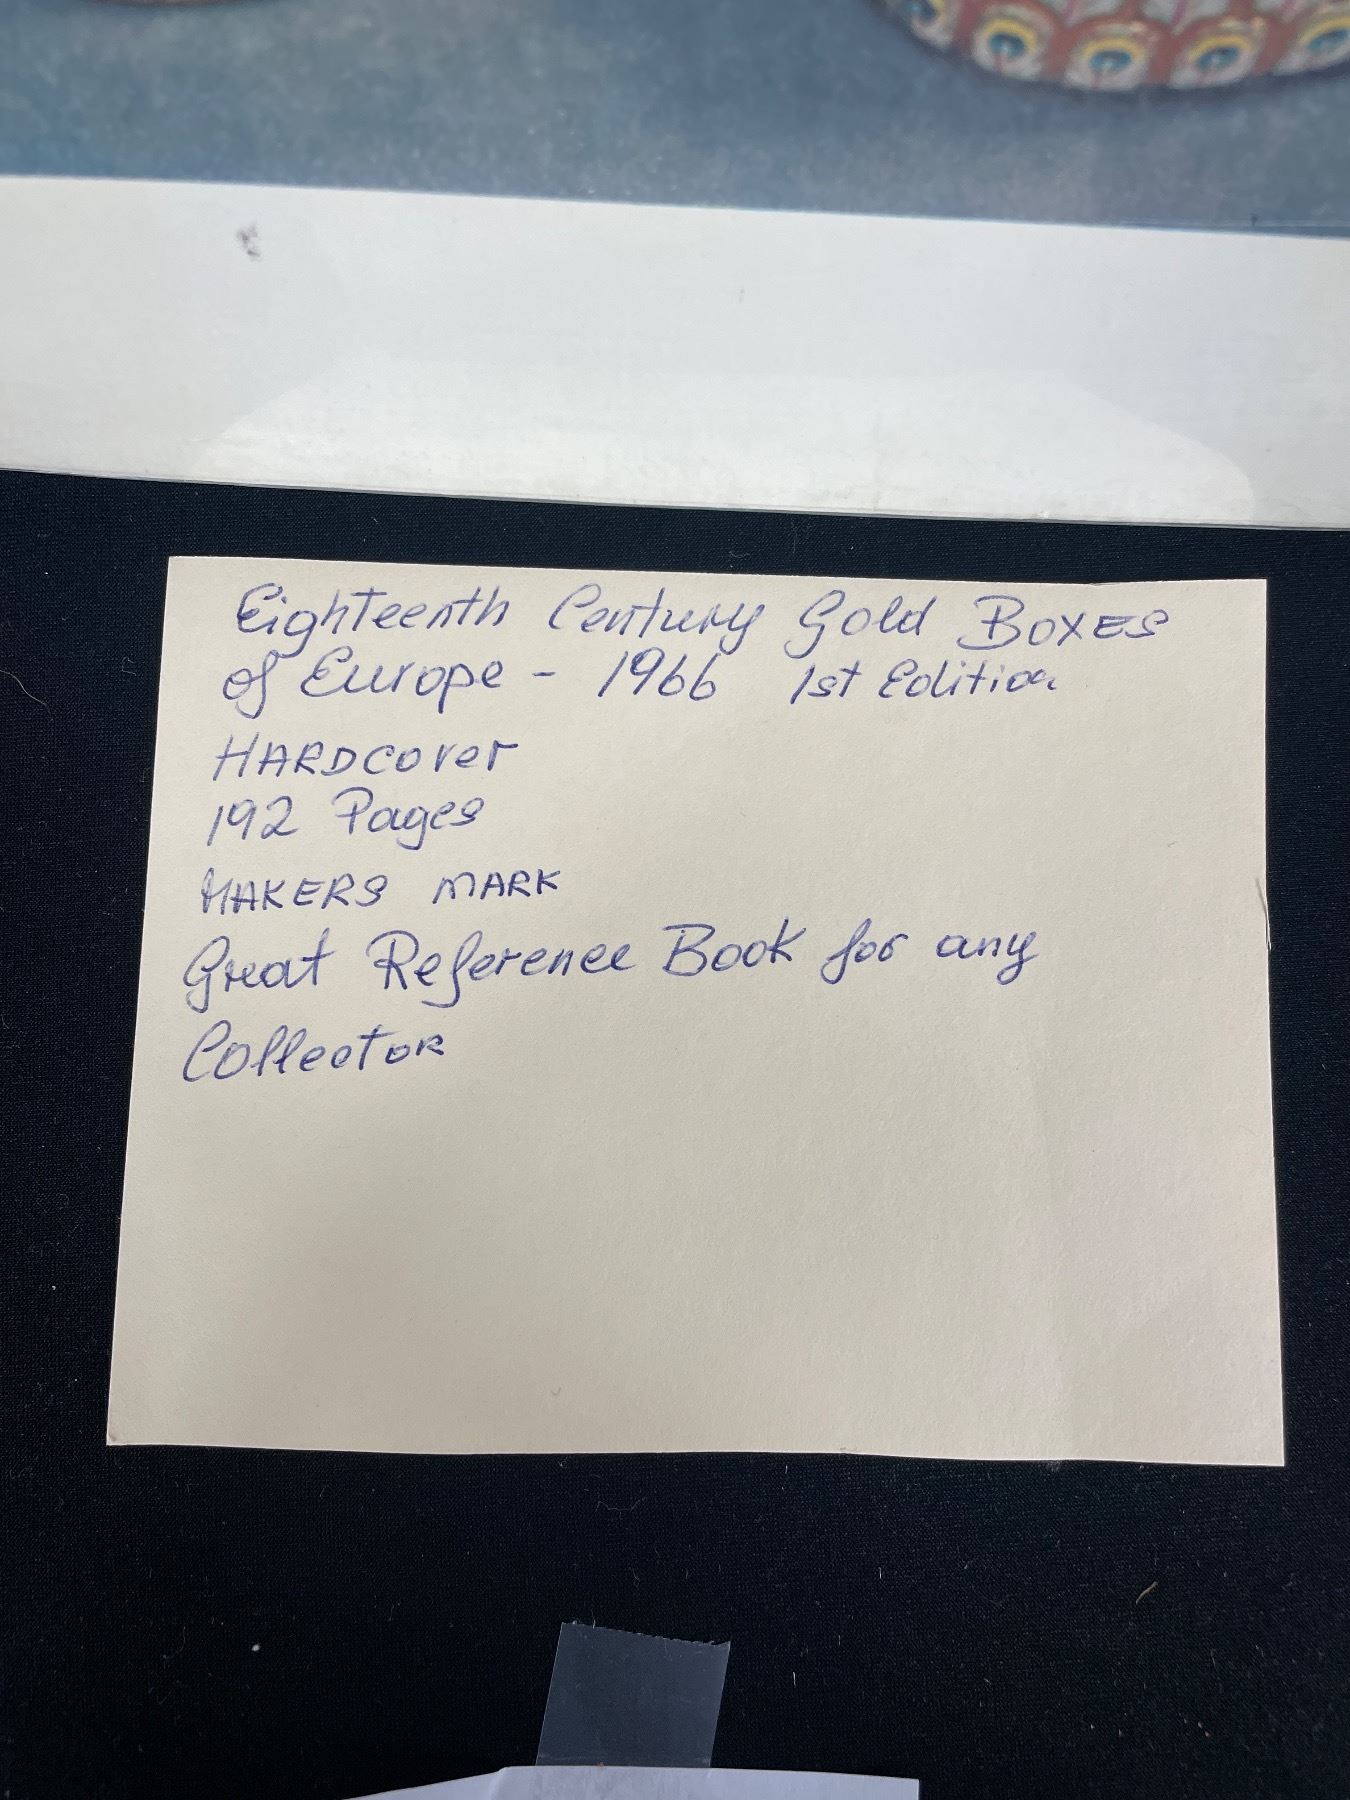 Eighteenth Century Gold BOXES
of Europe - 1966 1st Edition
HARDCOver
192 Pages
MAKERS MARK
Great Reference Book for any
CollectOR